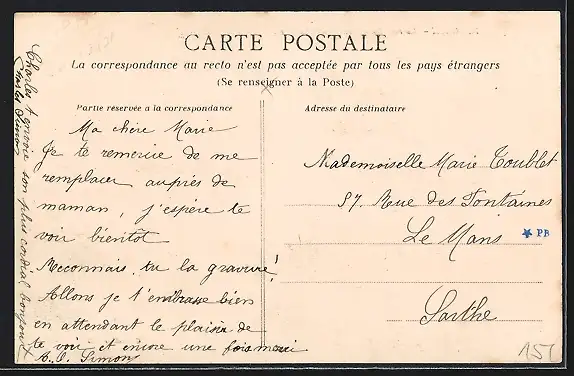 CARTE POSTALE
La correspondance au recto n'est pas acceptée par tous les pays étrangers
(Se renseigner à la Poste)
Partie réservée a la correspondance
Adresse du destinataire
Ma chère Marie
Je te remercie de me
remplacer auprès de
maman, j'espère te
voir bientôt
Reconnais, tu la gravure!
Allons je t'embrasse bien
en attendant le plaisir de
te voir et encore une fois merci
Simons
Mademoiselle Marie Toublet
57. Rue des Fontaines
Le Mans
Sarthe
PB
Charles
son plus cordial bonjour
Charles Simons